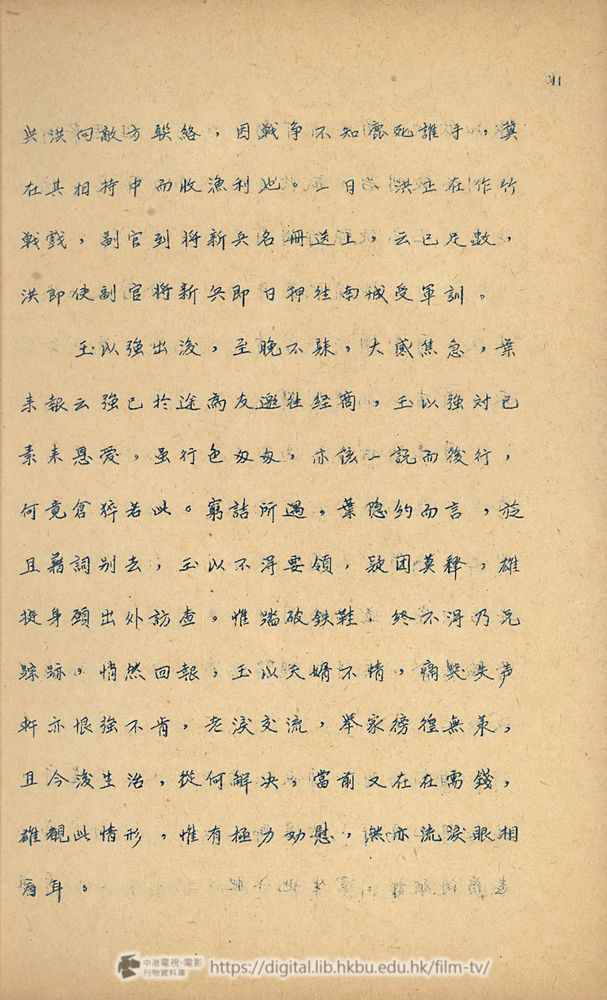 與洪向敵方聯絡，因戦争不知鹿死誰手，冀
在其相持中而收漁利也。一日、洪正在作竹
戦戲，副官到將新兵名冊送上，云已足数，
洪即使副官將新兵即日押往南城受軍訓。
玉以強出後，至晚不归，大感焦急，葉
来報云強已於途為友邀往经商，玉以強対己
素来恩爱，虽行色匆匆，亦該一説而後行，
何竟倉猝若此。窮詰所遇。葉隐約而言，旋
且藉詞别去，玉以不得要領，疑团莫释，雄
挺身願出外訪查。惟踏破鉄鞋，终不得乃兄
踪跡。悄然回報，玉以夫婿不情，痛哭失声
軒亦恨強不肖，老淚交流，举家徬徨無策，
且今後生治，從何解决，當前又在在需錢，
雄覩此情形，惟有極力劝慰，然亦流淚眼相
看耳。
中港電視·電影
刊物資料庫
https://digital.lib.hkbu.edu.hk/film-tv/